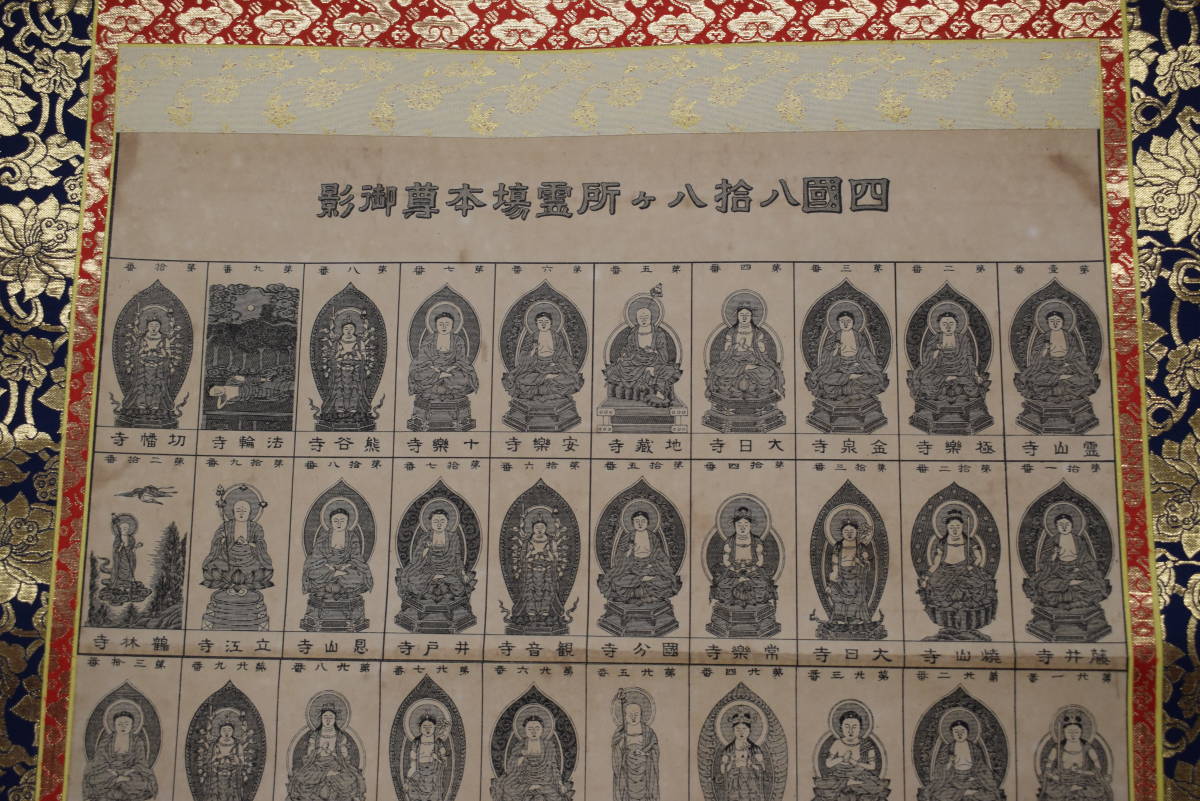 四國八拾八ヶ所霊塲本尊御影
第壹番 第二番 第三番 第四番 第五番 第六番 第七番 第八番 第九番 第拾番
霊山寺 極樂寺 金泉寺 大日寺 地蔵寺 安樂寺 十樂寺 熊谷寺 法輪寺 切幡寺
第拾一番 第拾二番 第拾三番 第拾四番 第拾五番 第拾六番 第拾七番 第拾八番 第拾九番 第二拾番
藤井寺 燒山寺 大日寺 常樂寺 國分寺 観音寺 井戸寺 恩山寺 立江寺 鶴林寺
第廿一番 第廿二番 第廿三番 第廿四番 第廿五番 第廿六番 第廿七番 第廿八番 第廿九番 第三拾番